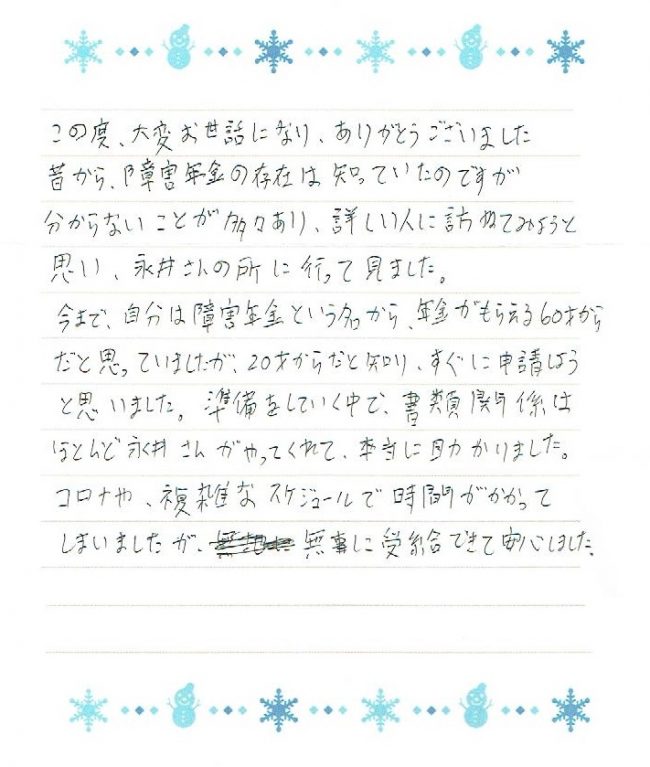 この度、大変お世話になり、ありがとうございました
昔から、障害年金の存在は知っていたのですが
分からないことが多々あり、詳しい人に訪ねてみようと
思い、永井さんの所に行って見ました。
今まで、自分は障害年金という名から、年金がもらえる60才から
だと思っていましたが、20才からだと知り、すぐに申請しよう
と思いました。準備をしていく中で、書類関係は
ほとんど永井さんがやってくれて、本当に助かりました。
コロナや、複雑なスケジュールで時間がかかって
しまいましたが、無事に受給できて安心しました。